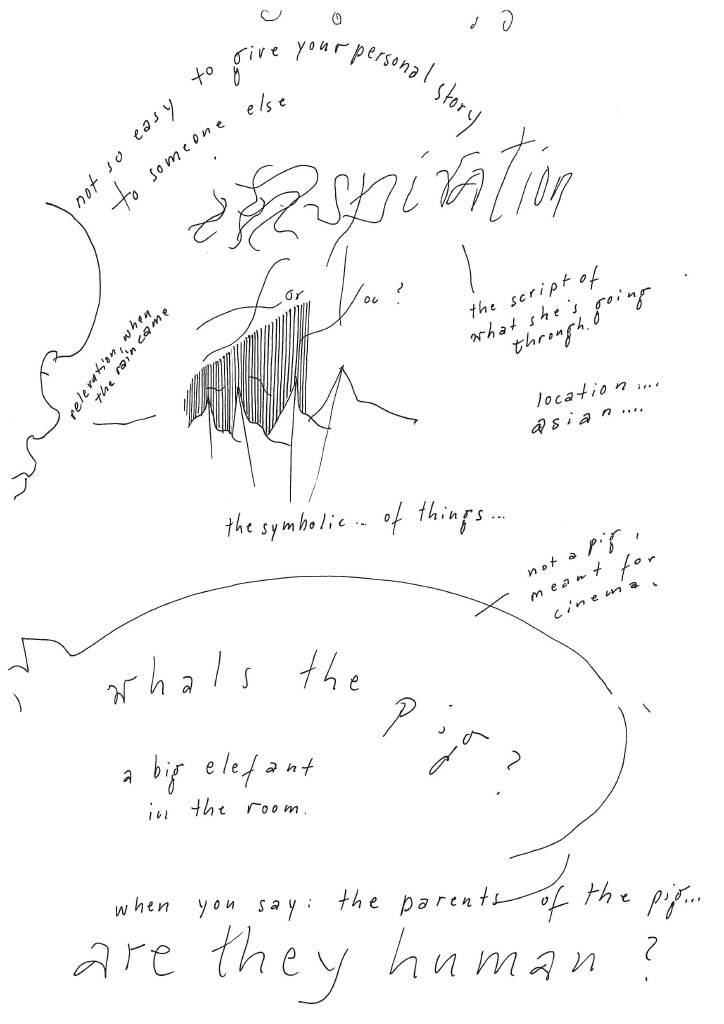 not so easy to give your personal story
to someone else
spiration
or
ou ?
the script of
what she's going
through.
relevation, when
the rain came
location....
asian....
the symbolic... of things...
not a pig,
meant for
cinema.
whals the
pig?
a big elefant
in the room.
when you say: the parents of the pig...
are they human?